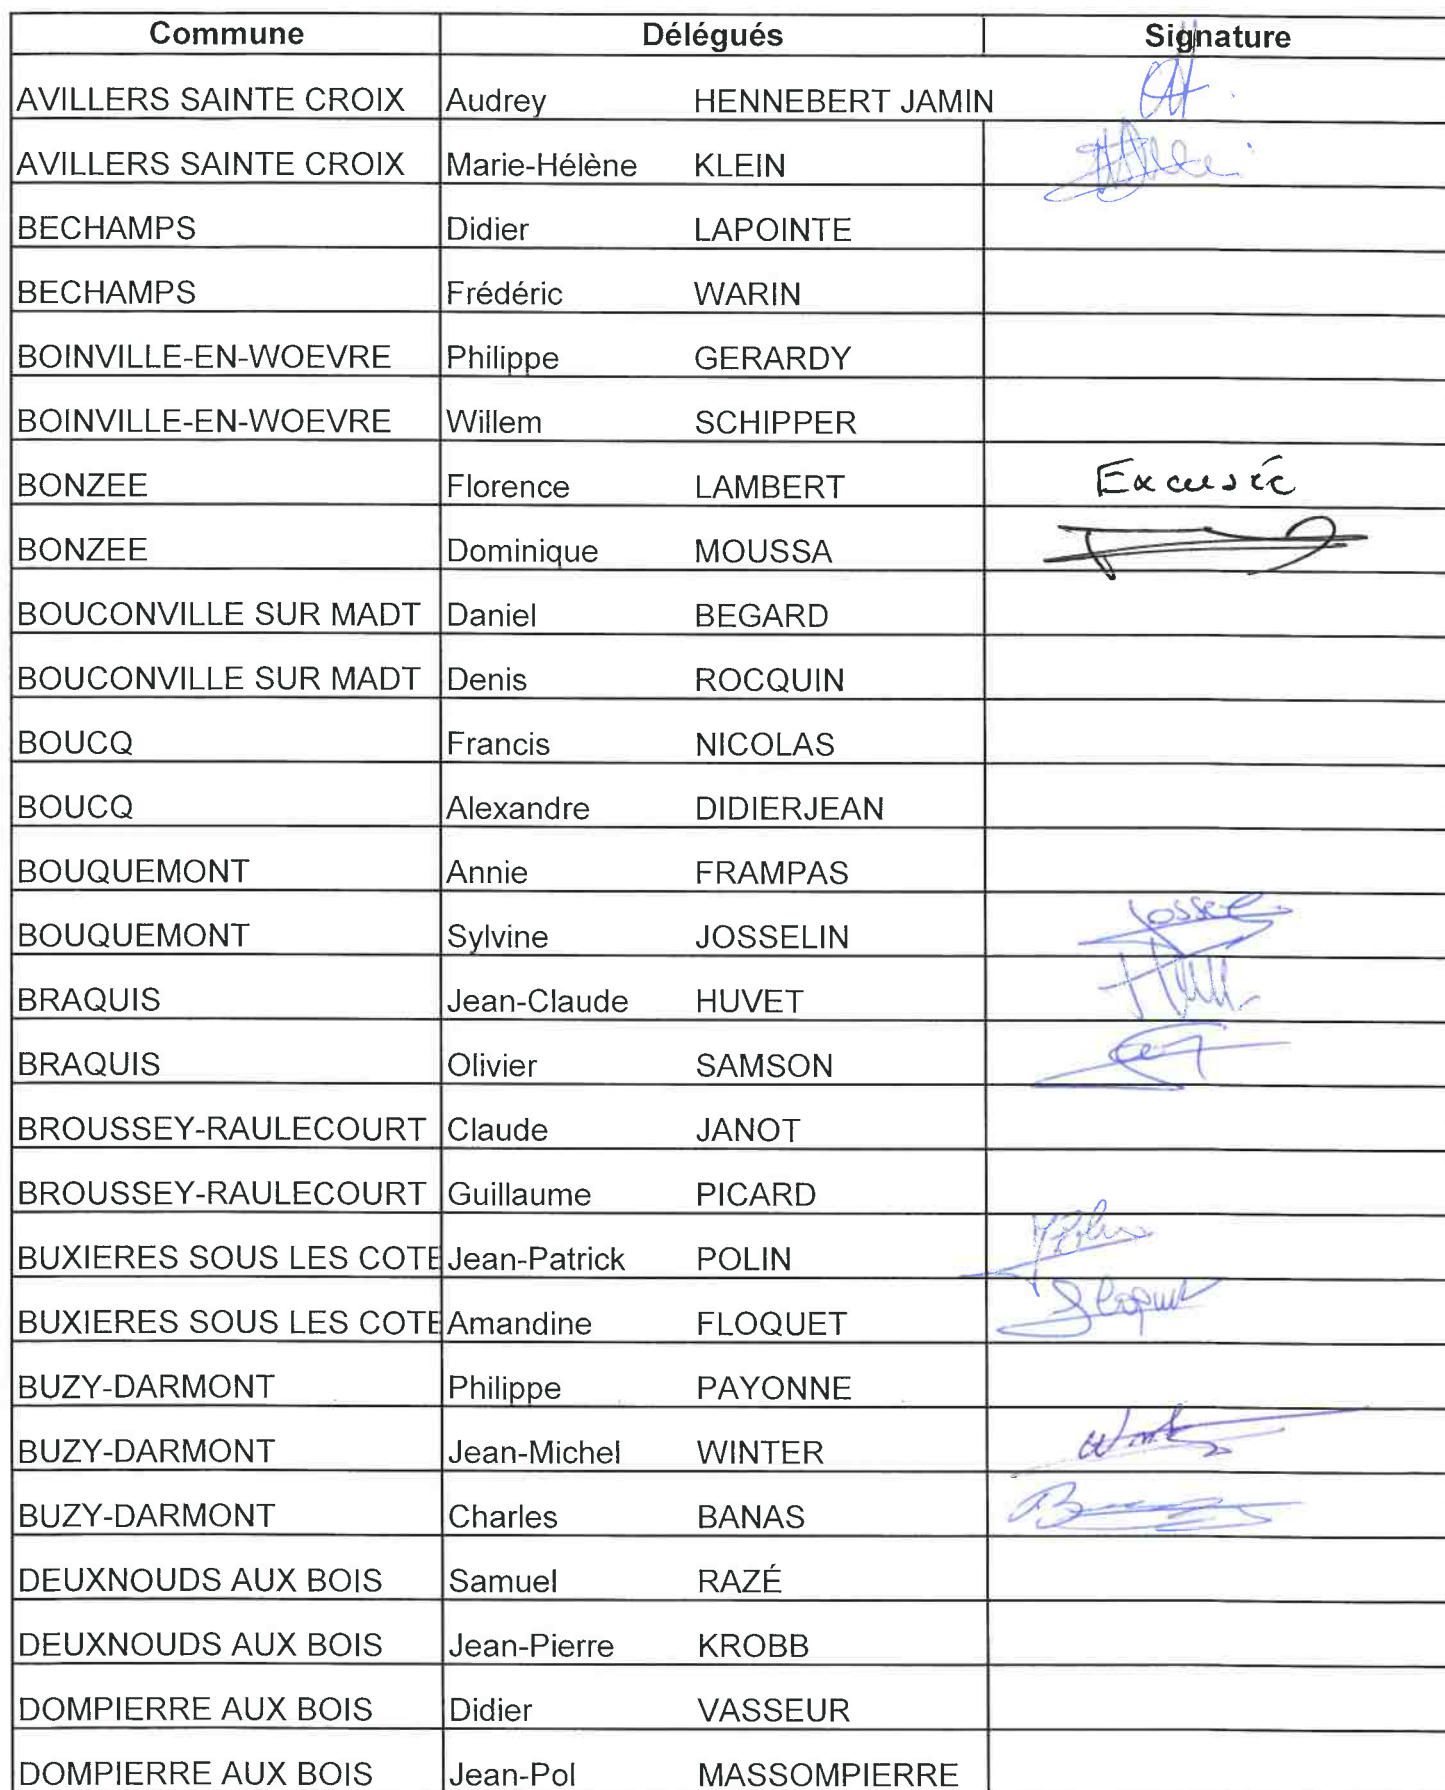 Commune Délégués Signature
AVILLERS SAINTE CROIX Audrey HENNEBERT JAMIN
AVILLERS SAINTE CROIX Marie-Hélène KLEIN
BECHAMPS Didier LAPOINTE
BECHAMPS Frédéric WARIN
BOINVILLE-EN-WOEVRE Philippe GERARDY
BOINVILLE-EN-WOEVRE Willem SCHIPPER
BONZEE Florence LAMBERT Excusée
BONZEE Dominique MOUSSA
BOUCONVILLE SUR MADT Daniel BEGARD
BOUCONVILLE SUR MADT Denis ROCQUIN
BOUCQ Francis NICOLAS
BOUCQ Alexandre DIDIERJEAN
BOUQUEMONT Annie FRAMPAS
BOUQUEMONT Sylvine JOSSELIN
BRAQUIS Jean-Claude HUVET
BRAQUIS Olivier SAMSON
BROUSSEY-RAULECOURT Claude JANOT
BROUSSEY-RAULECOURT Guillaume PICARD
BUXIERES SOUS LES COTE Jean-Patrick POLIN
BUXIERES SOUS LES COTE Amandine FLOQUET
BUZY-DARMONT Philippe PAYONNE
BUZY-DARMONT Jean-Michel WINTER
BUZY-DARMONT Charles BANAS
DEUXNOUDS AUX BOIS Samuel RAZÉ
DEUXNOUDS AUX BOIS Jean-Pierre KROBB
DOMPIERRE AUX BOIS Didier VASSEUR
DOMPIERRE AUX BOIS Jean-Pol MASSOMPIERRE